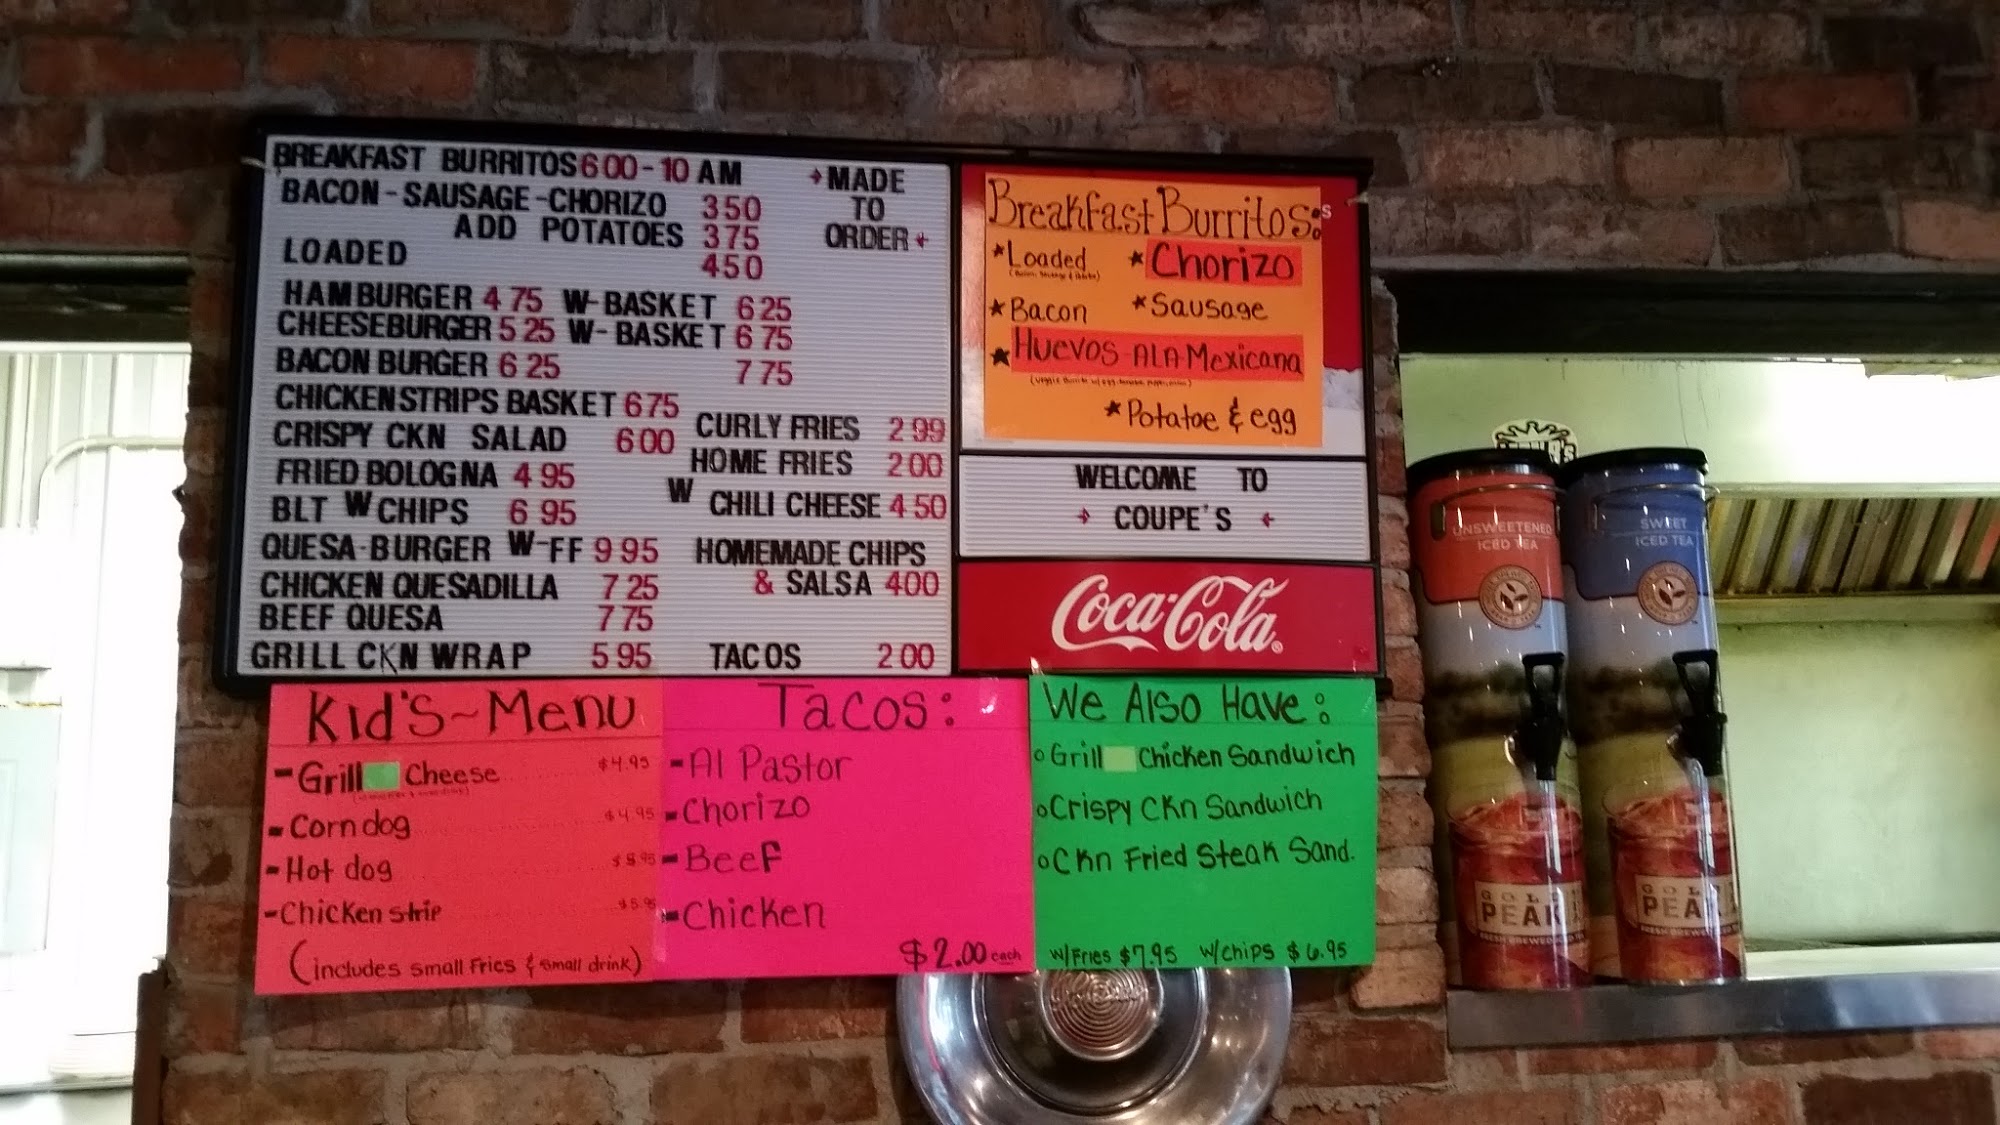 BREAKFAST BURRITOS 6 00 - 10 AM
BACON - SAUSAGE - CHORIZO 3 50
ADD POTATOES 3 75
LOADED 4 50
➔ MADE
TO
ORDER ➔
HAMBURGER 4 75 W-BASKET 6 25
CHEESEBURGER 5 25 W-BASKET 6 75
BACON BURGER 6 25 7 75
CHICKEN STRIPS BASKET 6 75
CRISPY CKN SALAD 6 00
FRIED BOLOGNA 4 95
BLT W CHIPS 6 95
QUESA-BURGER W-FF 9 95
CHICKEN QUESADILLA 7 25
BEEF QUESA 7 75
GRILL CKN WRAP 5 95
CURLY FRIES 2 99
HOME FRIES 2 00
W CHILI CHEESE 4 50
HOMEMADE CHIPS
& SALSA 4 00
TACOS 2 00
Breakfast Burritos:
* Loaded
* Chorizo
* Bacon
* Sausage
* Huevos-ALA-Mexicana
* Potatoe & egg
WELCOME TO
COUPE'S
Coca-Cola
Kid's~Menu
- Grill Cheese $4.95
- Corn dog $4.95
- Hot dog
- Chicken strip $5.95
(includes small Fries & small drink)
Tacos:
- Al Pastor
- Chorizo
- Beef
- Chicken
$2.00 each
We Also Have:
o Grill Chicken Sandwich
o Crispy Ckn Sandwich
o Ckn Fried Steak Sand.
w/Fries $7.95 w/chips $6.95
UNSWEETENED
ICED TEA
GOLD
PEAK
FRESH BREWED
SWEET
ICED TEA
GOLD
PEAK
FRESH BREWED